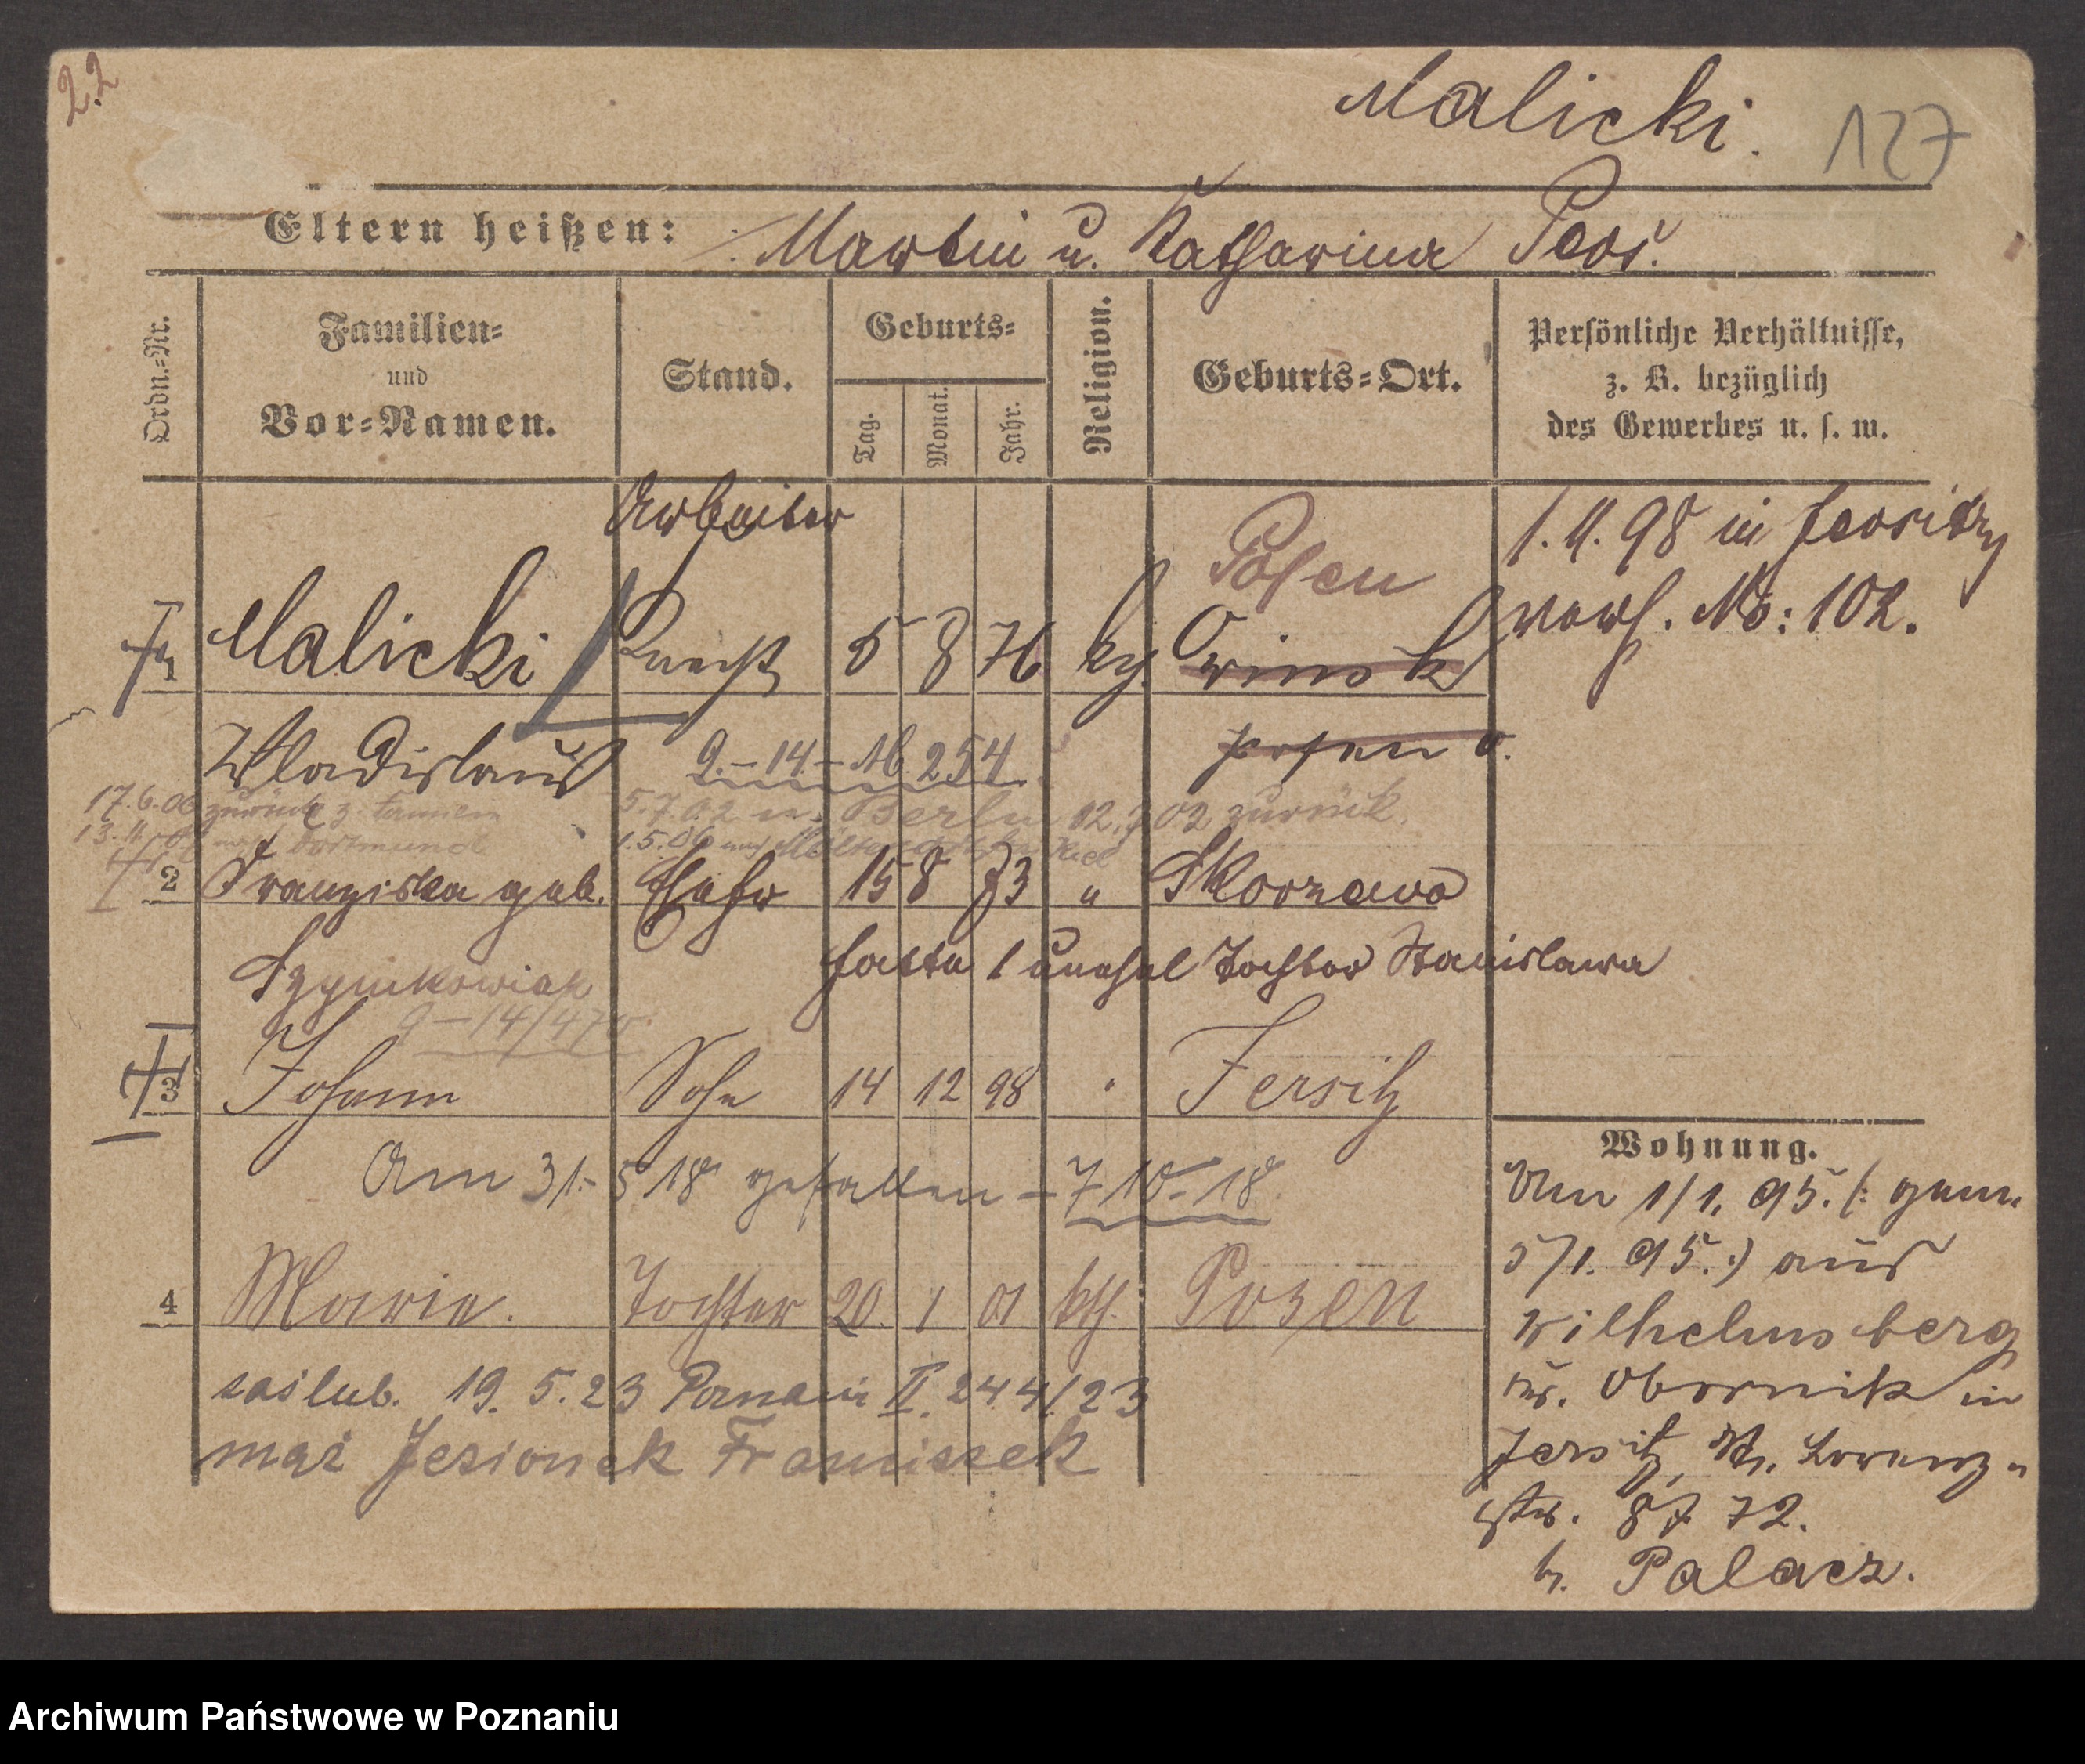 22
Malicki.
127
Eltern heißen: Martin u. Katharina Peos.
Ordn.-Nr.
Familien-
und
Vor-Namen.
Stand.
Geburts-
Tag.
Monat.
Jahr.
Religion.
Geburts-Ort.
Persönliche Verhältnisse,
z. B. bezüglich
des Gewerbes u. s. w.
Arbeiter
Posen
1. 4. 98 in Jersitz
1 Malicki Knecht 5 8 76 kth. Owinsk
verh. No: 102.
Wladislaus 9.-14.-16.254 Posen O.
17.6.06 zurück z. Familie 5.7.02 n. Berlin 02 zurück.
Dortmund 1.5.06 nach
2 Franziska geb. Ehefr 15 8 73 " Skorzewo
Szymkowiak hatte 1 unehel Tochter Stanislawa
9-14/47
3 Johann Sohn 14 12 98 " Jersitz
Am 31.-5 18 gefallen - 7 10-18
4 Marie. Tochter 20. 1 01 kth. Posen
zaślub. 19. 5. 23 Poznań II. 244/23
mąż Jezionek Franciszek
Wohnung.
Am 1/1. 95. (: gem.
5/1. 95.:) aus
Wilhelmsberg
Kr. Obornik in
Jersitz,
str. 87 72.
b. Palacz.
Archiwum Państwowe w Poznaniu